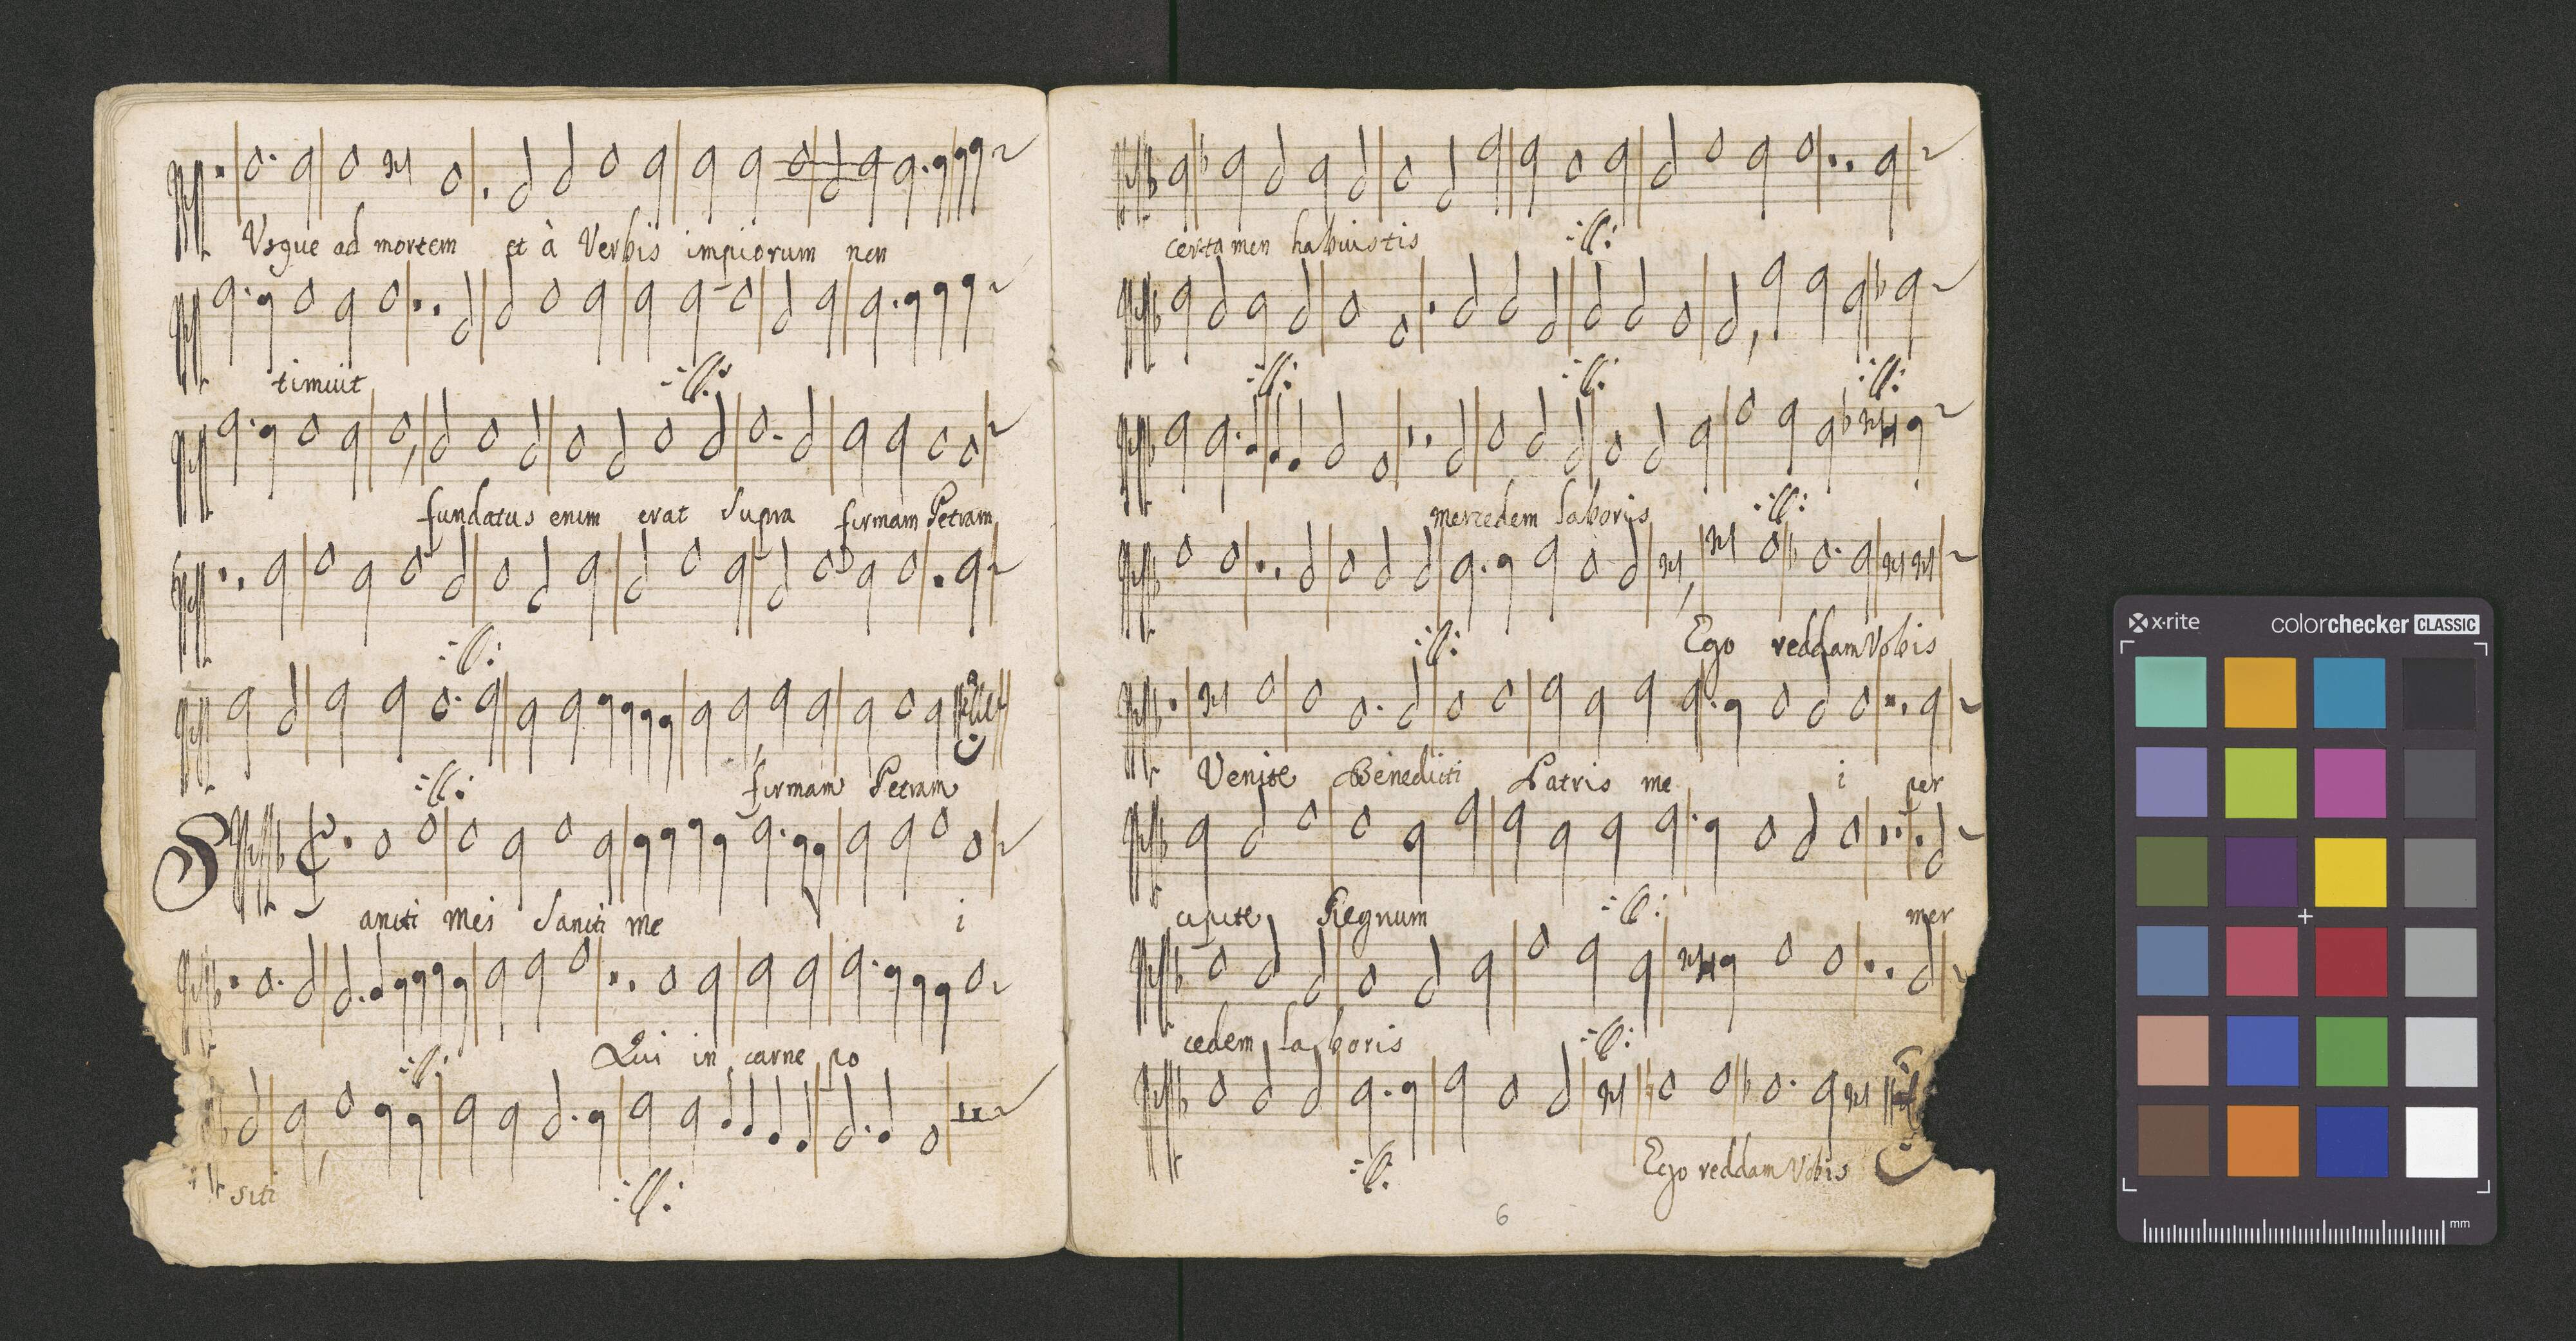 Vsque ad mortem et à Verbis impiorum non
timuit
fundatus enim erat supra firmam Petram
firmam Petram
Sancti mei Sancti me i
Qui in carne po
siti
certamen habuistis
mercedem laboris
Ego reddam Vobis
Venite Benedicti Patris me i per
cipite Regnum mer
cedem laboris
Ego reddam Vobis
6
x·rite colorchecker CLASSIC
mm